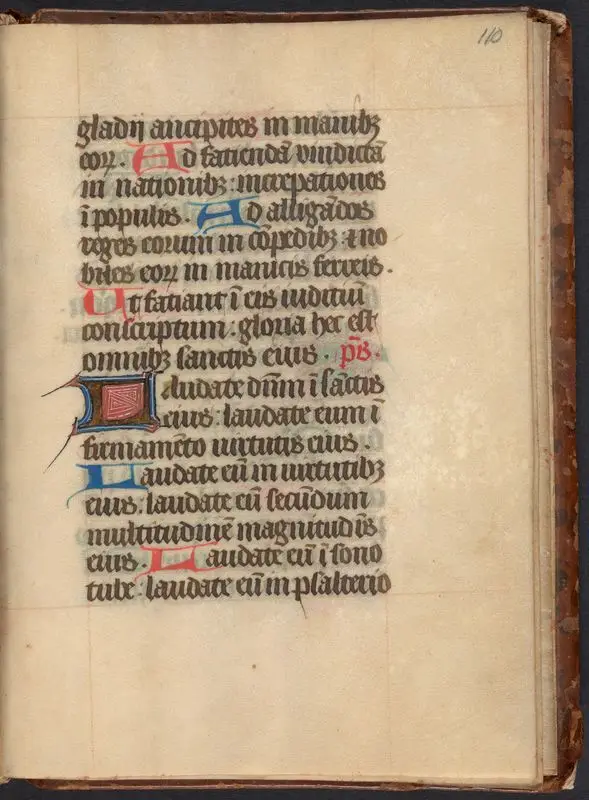 110
gladij ancipites in manibꝫ
eoꝝ. Ad faciendā vindictā
in nationibꝫ : increpationes
ī populis. Ad alligādos
reges eorum in cōpedibꝫ ⁊ no
biles eoꝝ in manicis ferreis.
Ut faciant ī eis iuditiū
conscriptum : gloria hec est
omnibꝫ sanctis eius. p̄s.
Laudate dn̄m ī sāctis
eius : laudate eum ī
firmamēto uirtutis eius.
Laudate eū in uirtutibꝫ
eius : laudate eū secūdum
multitudinē magnitudīs
eius. Laudate eū ī sono
tube : laudate eū in psalterio